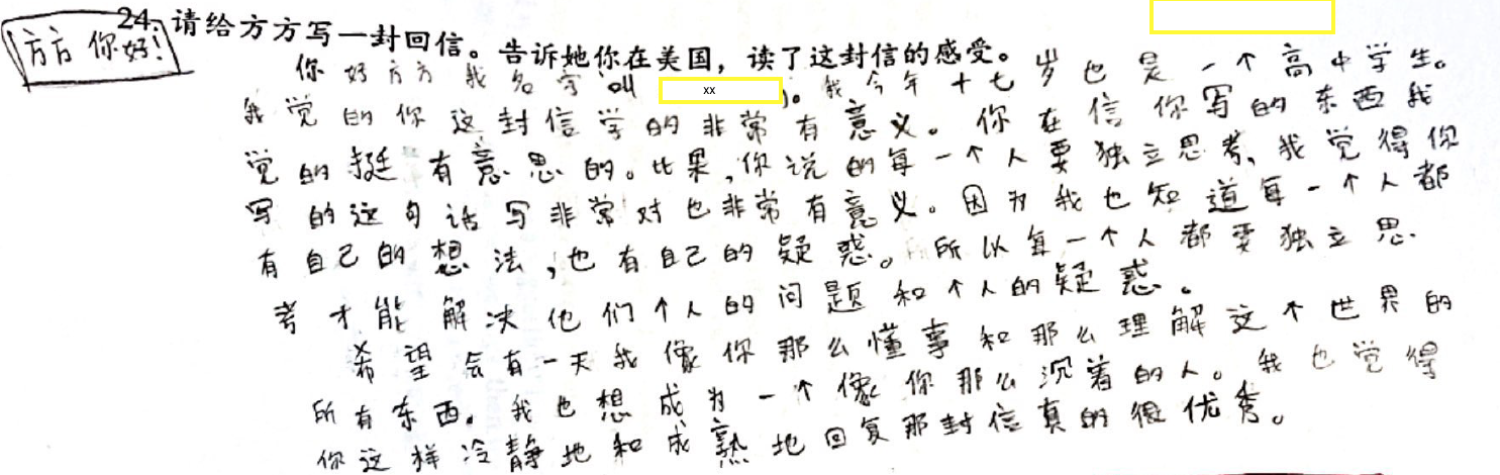 24. 请给方方写一封回信。告诉她你在美国，读了这封信的感受。
方方 你好！
你好方方 我名字叫 xx 。我今年十七岁也是一个高中学生。
我觉的你这封信学的非常有意义。你在信你写的东西我
觉的挺有意思的。比果，你说的每一个人要独立思考、我觉得你
写的这句话写非常对也非常有意义。因为我也知道每一个人都
有自己的想法，也有自己的疑惑。所以每一个人都要独立思
考才能解决他们个人的问题和个人的疑惑。
希望会有一天我像你那么懂事和那么理解这个世界的
所有东西。我也想成为一个像你那么沉着的人。我也觉得
你这样冷静地和成熟地回复那封信真的很优秀。